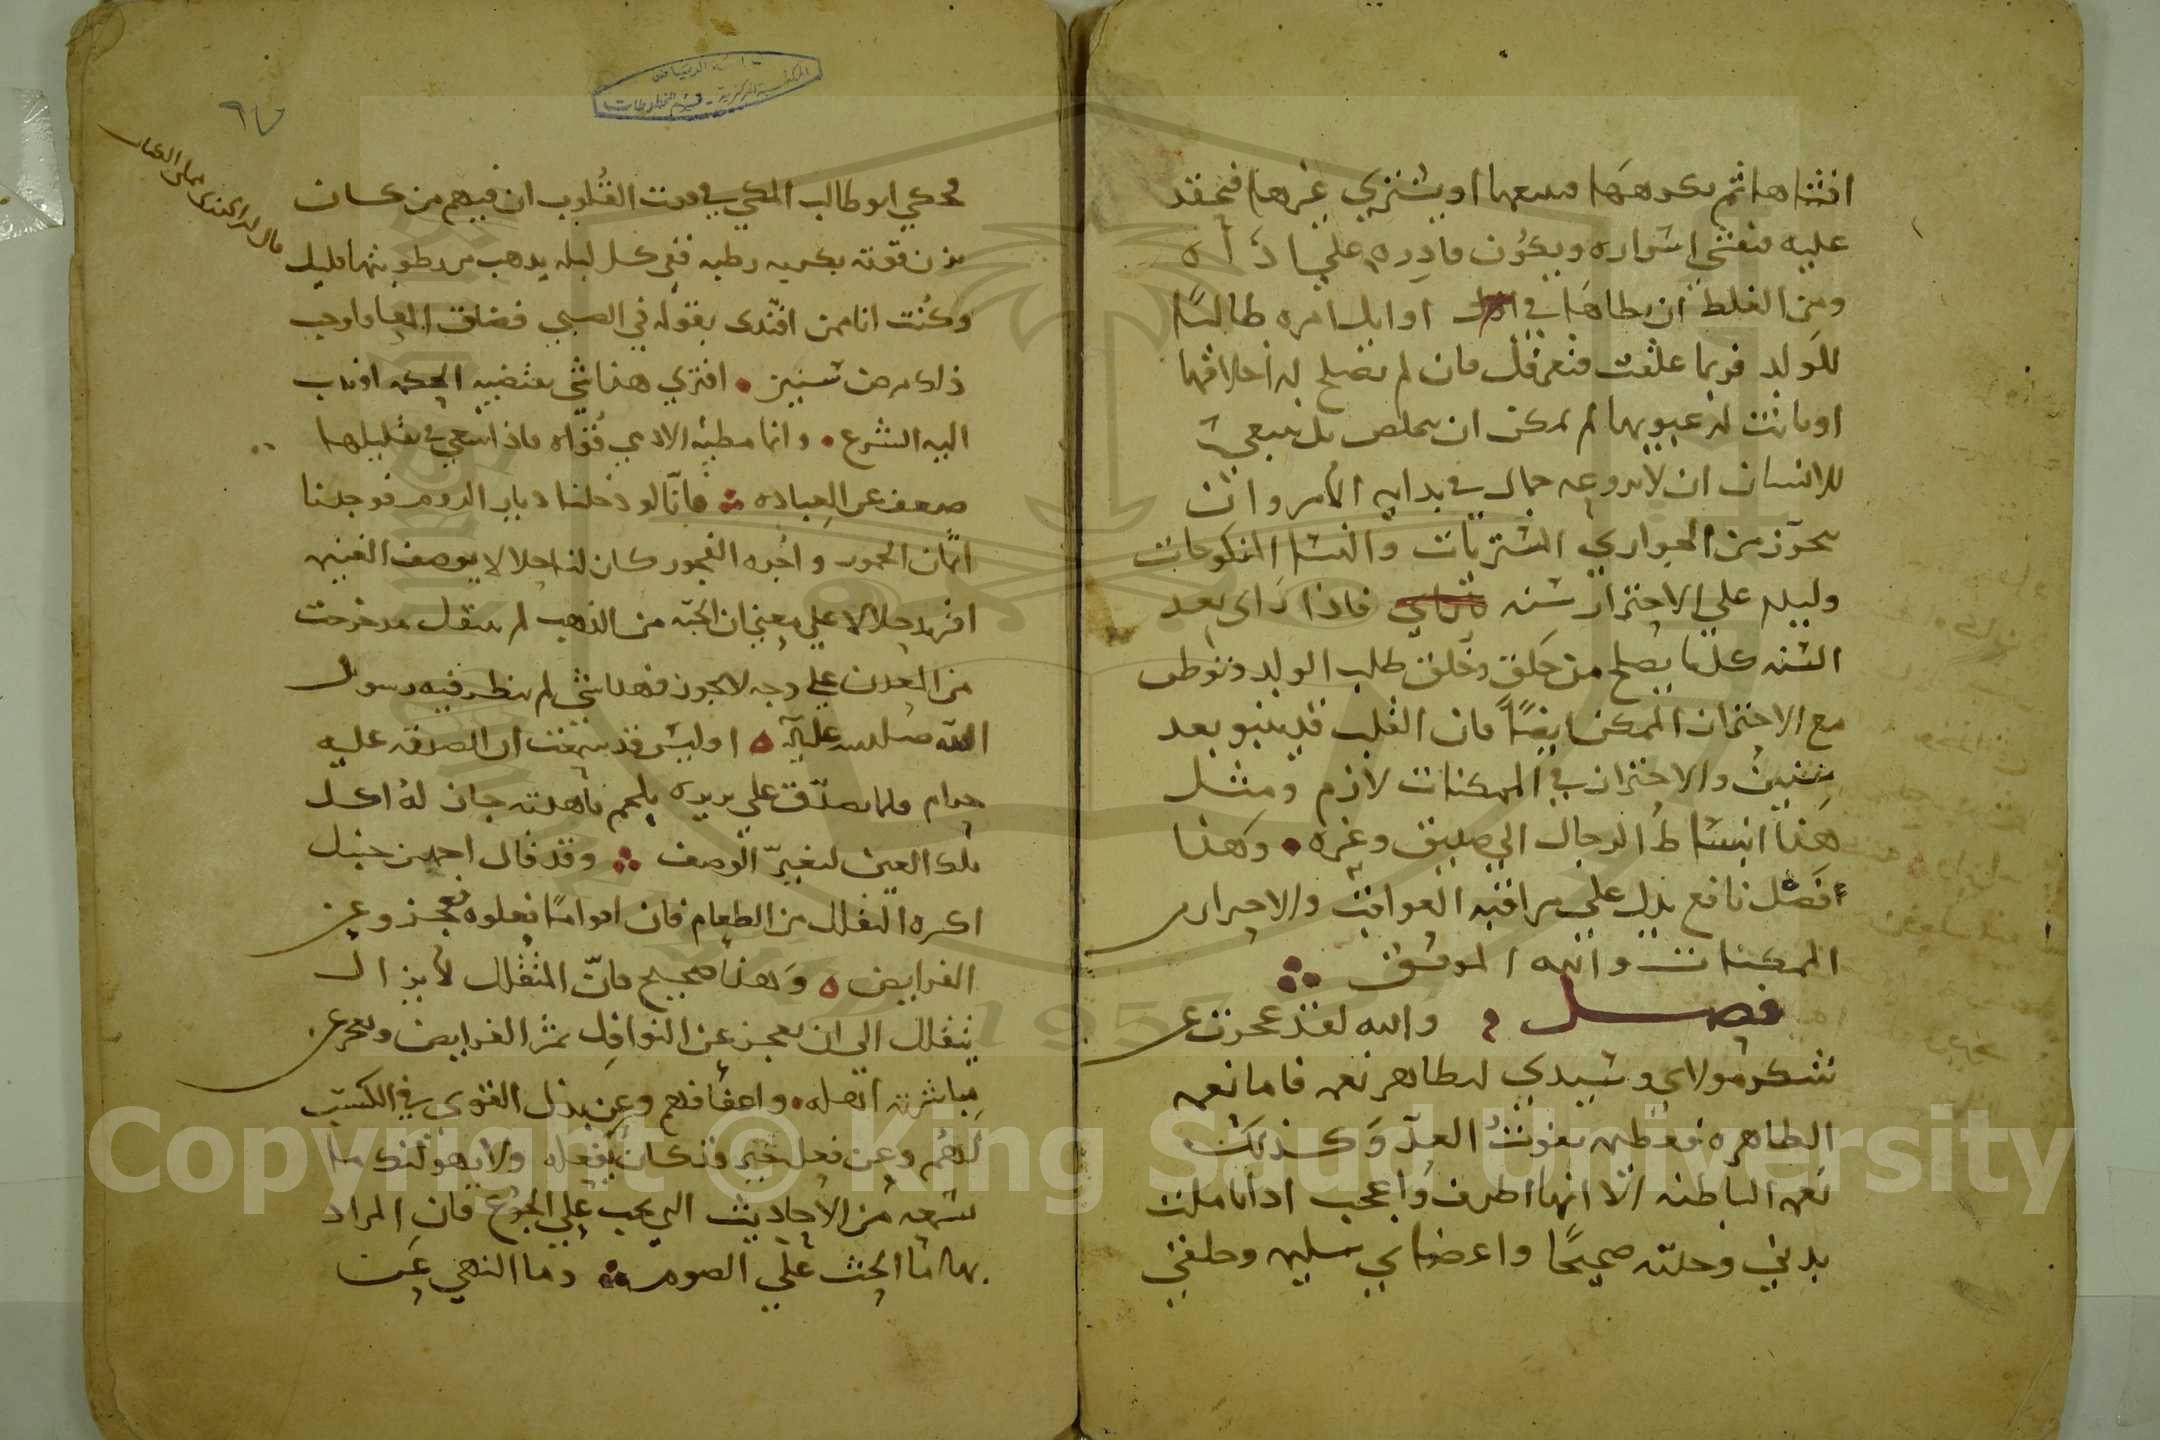 اقتناها ثم يكرهها فيبيعها او يشتري غيرها فيحقد
عليه فتفشي اسراره ويكون قادره علي اذاه
ومن الغلط ان يطاها في اوايل امره طالبًا
للولد فربما علقت فتعرقل فان لم تصلح له اخلاقها
او بانت له عيوبها لم يمكن ان يتخلص بل ينبغي
للانسان ان لا يروعه جمال في بدايه الأمر وان
يتحرز من الجواري المشتريات والنسا المنكوحات
وليبد علي الاحتراز سنه فاذا راى بعد
السنه كلما يصلح من خَلق وخُلق طلب الولد ونوطن
مع الاحتراز الممكن ايضًا فان القلب قد ينبو بعد
سنين والاحتراز في الممكنات لازم ومثل
هذا انبساط الرجال الي صديق وغيره وهذا
فصل نافع يدل علي مراقبه العواقب والاحتراز من
الممكنات والله الموفق
فصل والله لقد عجزت عن
شكر مولاي وسيدي لتظاهر نعمه فاما نعمه
الظاهره فعظيمه تفوت العدّ وكذلك
نعمه الباطنه الا انها اطرف واعجب اذا تاملت
بدني وجدته صحيحًا واعضاي سليمه وخلقتي
٩٧
فحكي ابو طالب المكي في قوت القلوب ان فيهم من كان
يزن قوته بكربه رطبه ففي كل ليله يذهب من رطوبتها قليل
وكنت انا ممن اقتدى بقوله في الصبي فضاق المعا واوجب
ذلك مرض سنين افتري هذا شي تقتضيه الحكمه او ندب
اليه الشرع وانما مطيه الادمي قواه فاذا سعي في تقليلها
ضعف عن العباده فانّا لو دخلنا ديار الروم فوجدنا
اثمان الخمور واجره الفجور كان لنا حلالا بوصف الغنيمه
افتريد حلالا علي معني ان الحبه من الذهب لم تنتقل مذ خرجت
من المعدن علي وجه لا يجوز فهذا شي لم ينظر فيه رسول
الله صلى الله عليه اوليس قد سمعت ان الصدقه عليه
حرام فلما تصدق علي بريره بلحم فاهدته جاز له اكل
تلك العين لتغيرّ الوصف وقد قال احمد بن حنبل
اكره التقلل من الطعام فان اقوامًا فعلوه فعجزوا عن
الفرايض وهذا صحيح فانّ المتقلل لا يزال
يتقلل الي ان يعجز عن النوافل ثم الفرايض ويعجز عن
مباشرة اهله واعفافهم وعن بذل القوى في الكسب
لهم وعن فعل خير قد كان يفعله ولا يهولنك ما
تسمعه من الاحاديث التي تحب علي الجوع فان المراد
بها اما الحث علي الصوم واما النهي عن